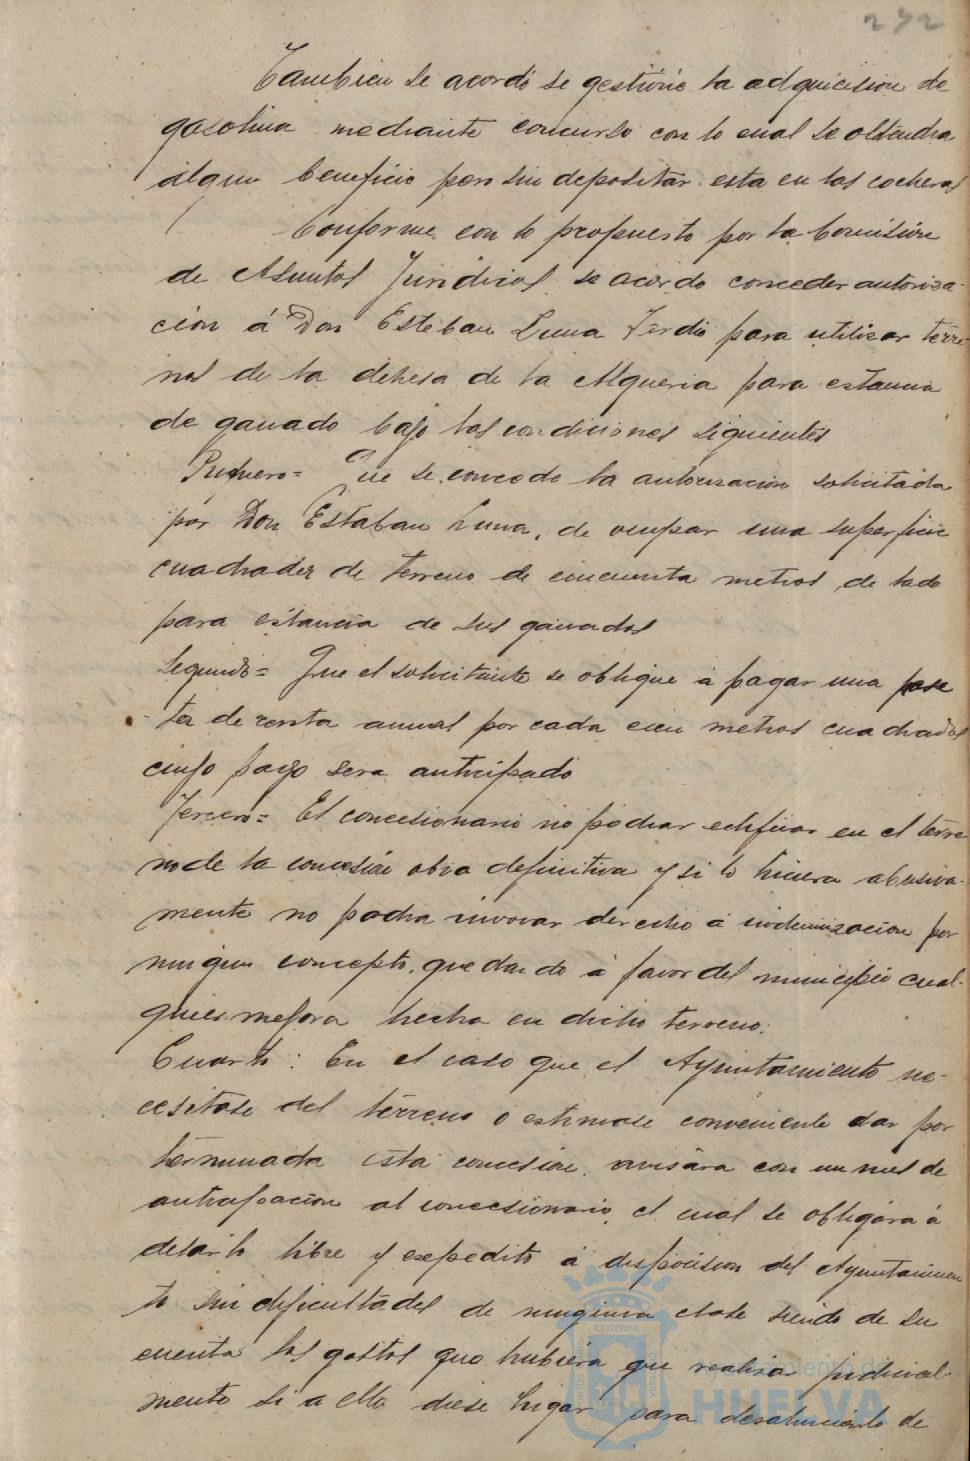 232
Tambien se acordó se gestione la adquicision de
gasolina mediante concurso con lo cual se obtendra
algun beneficio pero sin depositar esta en las cocheras
Conforme con lo propuesto por la Comisión
de Asuntos Juridicos se acordo conceder autoriza-
cion á Don Esteban Luna Verdie para utilizar terre
nos de la dehesa de la Alqueria para estancia
de ganado bajo las condiciones siguientes
Primero= Que se concede la autorizacion solicitada
por Don Estaban Luna, de ocupar una superficie
cuadrader de terreno de cincuenta metros de lado
para estancia de sus ganados
Segundo= Que el solicitante se obligue a pagar una pese
ta de renta annual por cada cien metros cuadrados
cuyo pago sera anticipado
Tercero= El concesionario no podrar edificar en el terre
no de la concesión obra definitiva y si lo hiciera abusiva-
mente no podra invocar derecho á indemnizacion por
ningun concepto, quedando á favor del municipio cual-
quier mejora hecha en dicho terreno.
Cuarto: En el caso que el Ayuntamiento ne-
cesitase del terreno o estimase conveniente dar por
terminada esta concesion, avisara con un mes de
anticipacion al concesionario, el cual se obligara á
dejarlo libre y expedito á disposicion del Ayuntamien
to sin dificultades de ninguna clase siendo de su
cuenta los gastos que hubiera que realizar judicial-
mente si a ello diese lugar para desahucierlo de
Ayuntamiento de
HUELVA